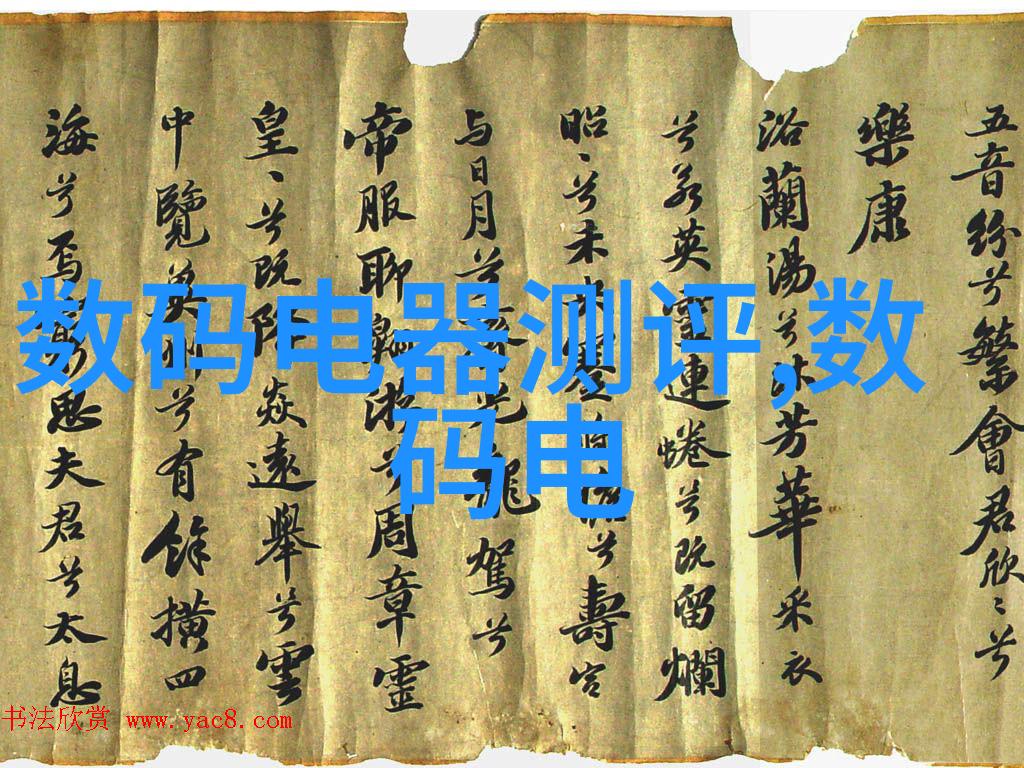 五音纷兮繁會君欣、兮
樂康
浴蘭湯兮沐芳華采衣
兮若英靈連蜷兮既留爛
昭、兮未央兮壽宮
与日月兮光龍駕兮
帝服聊遊兮周章靈
皇、兮既降焱遠舉兮雲
中覽兮有餘橫四
海兮焉思夫君兮太息
数码电器测评,数
码电
书法欣赏 www.yac8.com